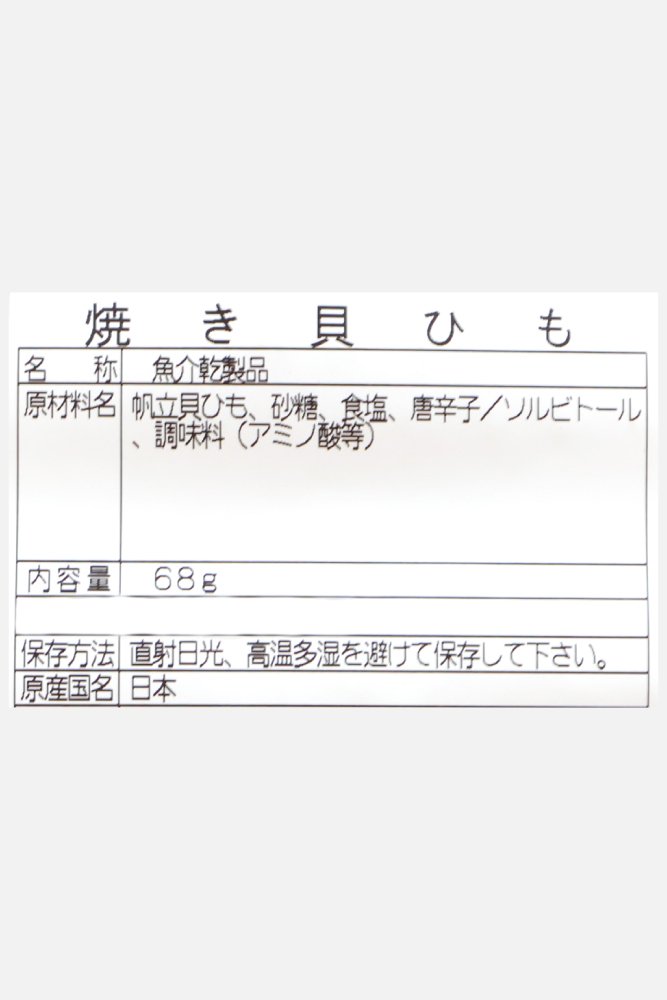 焼き貝ひも
名称 魚介乾製品
原材料名 帆立貝ひも、砂糖、食塩、唐辛子／ソルビトール
、調味料（アミノ酸等）
内容量 68g
保存方法 直射日光、高温多湿を避けて保存して下さい。
原産国名 日本